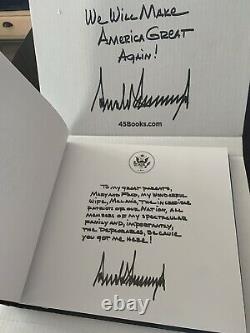 We Will Make
America Great
Again!
45Books.com
To my great parents,
Mary and Fred, my wonderful
wife, Melania, the incredible
patriots of our nation, all
members of my spectacular
family and, importantly,
the Deplorables, because
you got me here!